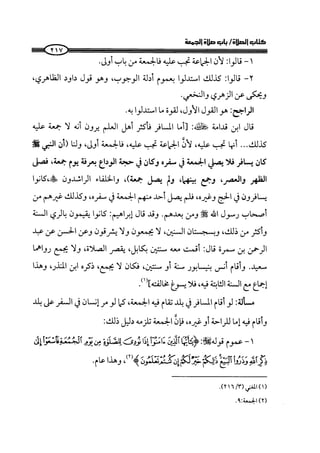 كتاب الصلاة / باب صلاة الجمعة
٢١٧
١- قالوا: لأن الجماعة تجب عليه فالجمعة من باب أولى.
٢- قالوا: كذلك استدلوا بعموم أدلة الوجوب، وهو قول داود الظاهري،
ويحكى عن الزهري والنخعي.
الراجح: هو القول الأول، لقوة ما استدلوا به.
قال ابن قدامة : [أما المسافر فأكثر أهل العلم يرون أنه لا جمعة عليه
كذلك... أنها تجب عليه، لأن الجماعة تجب عليه، فالجمعة أولى، ولنا (أن النبي ﷺ
كان يسافر فلا يصلي الجمعة في سفره وكان في حجة الوداع بعرفة يوم جمعة، فصلى
الظهر والعصر، وجمع بينهما، ولم يصل جمعة)، والخلفاء الراشدون ، كانوا
يسافرون في الحج وغيره، فلم يصل أحد منهم الجمعة في سفره، وكذلك غيرهم من
أصحاب رسول الله ﷺ ومن بعدهم. وقد قال إبراهيم: كانوا يقيمون بالري السنة
وأكثر من ذلك، وبسجستان السنين، لا يجمعون ولا يشرقون وعن الحسن عن عبد
الرحمن بن سمرة قال: أقمت معه سنتين بكابل، يقصر الصلاة، ولا يجمع رواهما
سعيد. وأقام أنس بنيسابور سنة أو سنتين، فكان لا يجمع، ذكره ابن المنذر، وهذا
إجماع مع السنة الثابتة فيه، فلا يسوغ مخالفته](١).
مسألة: لو أقام المسافر في بلد تقام فيه الجمعة، كما لو مر إنسان في السفر على بلد
وأقام فيه إما للراحة أو غيره، فإنَّ الجمعة تلزمه دليل ذلك:
١- عموم قوله : ﴿يَا أَيُّهَا الَّذِينَ آمَنُوا إِذَا نُودِيَ لِلصَّلَاةِ مِن يَوْمِ الْجُمُعَةِ فَاسْعَوْا إِلَىٰ
ذِكْرِ اللَّهِ وَذَرُوا الْبَيْعَ ذَٰلِكُمْ خَيْرٌ لَّكُمْ إِن كُنتُمْ تَعْلَمُونَ﴾(٢)، وهذا عام.
(١) المغني (٢١٦/٣).
(٢) الجمعة: ٩.